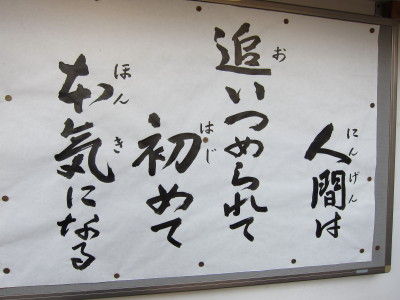 人間は
追いつめられて
初めて
本気になる
にんげん
お
はじ
ほんき